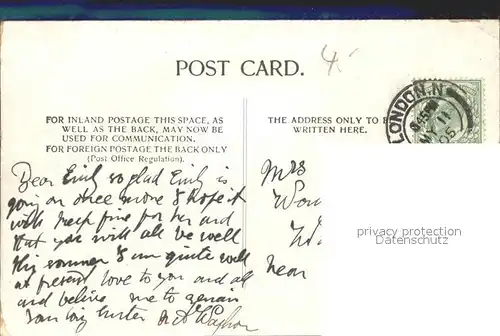 POST CARD.
FOR INLAND POSTAGE THIS SPACE, AS
WELL AS THE BACK, MAY NOW BE
USED FOR COMMUNICATION.
FOR FOREIGN POSTAGE THE BACK ONLY
(Post Office Regulation).
THE ADDRESS ONLY TO B
WRITTEN HERE.
LONDON. N
MY 11
05
Dear Emil so glad Emily is
going on once more & hope it
will keep fine for her and
that you will all be well
this summer I am quite well
at present love to you and all
and believe me to remain
your loving Sister M A
Mrs
near
privacy protection
Datenschutz